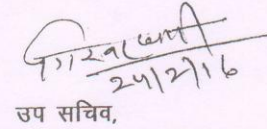 24/2/16
उप सचिव,